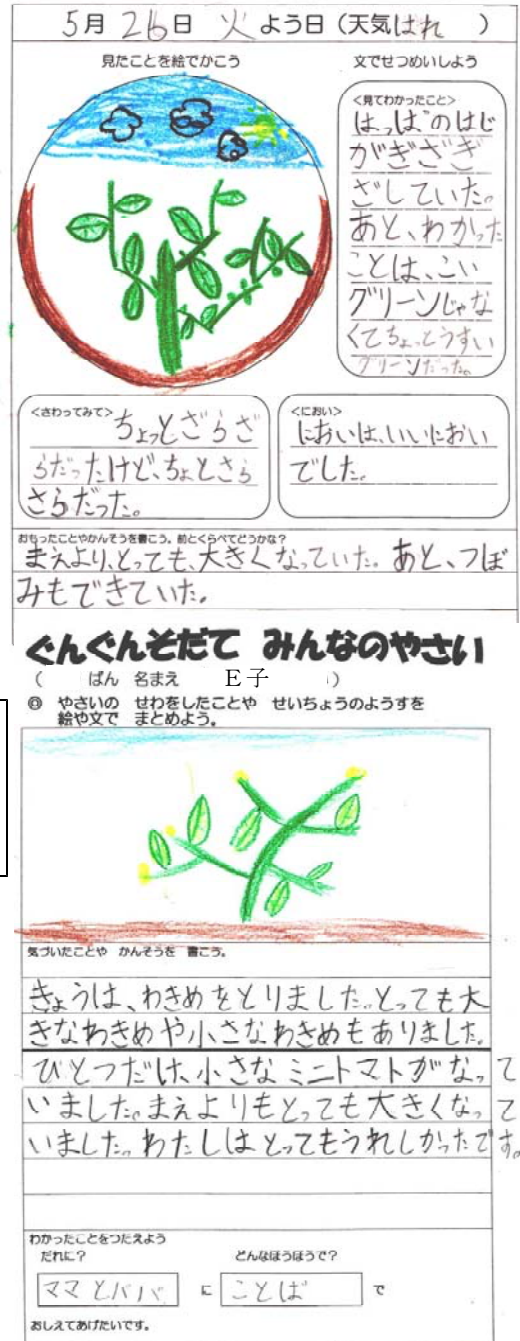 5月26日 火よう日(天気はれ )
見たことを絵でかこう
文でせつめいしよう
<見てわかったこと>
はっぱのはじ
がぎざぎ
ざしていた。
あと、わかった
ことは、こい
グリーンじゃな
くてちょっとうすい
グリーンだった。
<さわってみて>
ちょっとざらざ
らだったけど、ちょとさら
さらだった。
<におい>
においは、いいにおい
でした。
おもったことやかんそうを書こう。前とくらべてどうかな?
まえより、とっても、大きくなっていた。あと、つぼ
みもできていた。
ぐんぐんそだて みんなのやさい
( ばん 名まえ E子 )
◎ やさいの せわをしたことや せいちょうのようすを
絵や文で まとめよう。
気づいたことや かんそうを 書こう。
きょうは、わきめをとりました。とっても大
きなわきめや小さなわきめもありました。
ひとつだけ、小さなミニトマトがなって
いました。まえよりもとっても大きくなって
いました。わたしはとってもうれしかったです。
わかったことをつたえよう
だれに?
どんなほうほうで?
ママとパパ に ことば で
おしえてあげたいです。